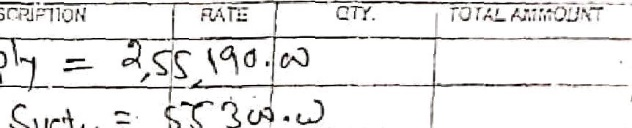 SCRIPTION RATE QTY. TOTAL AMMOUNT
ply = 2,55,190.00
= 55300.00